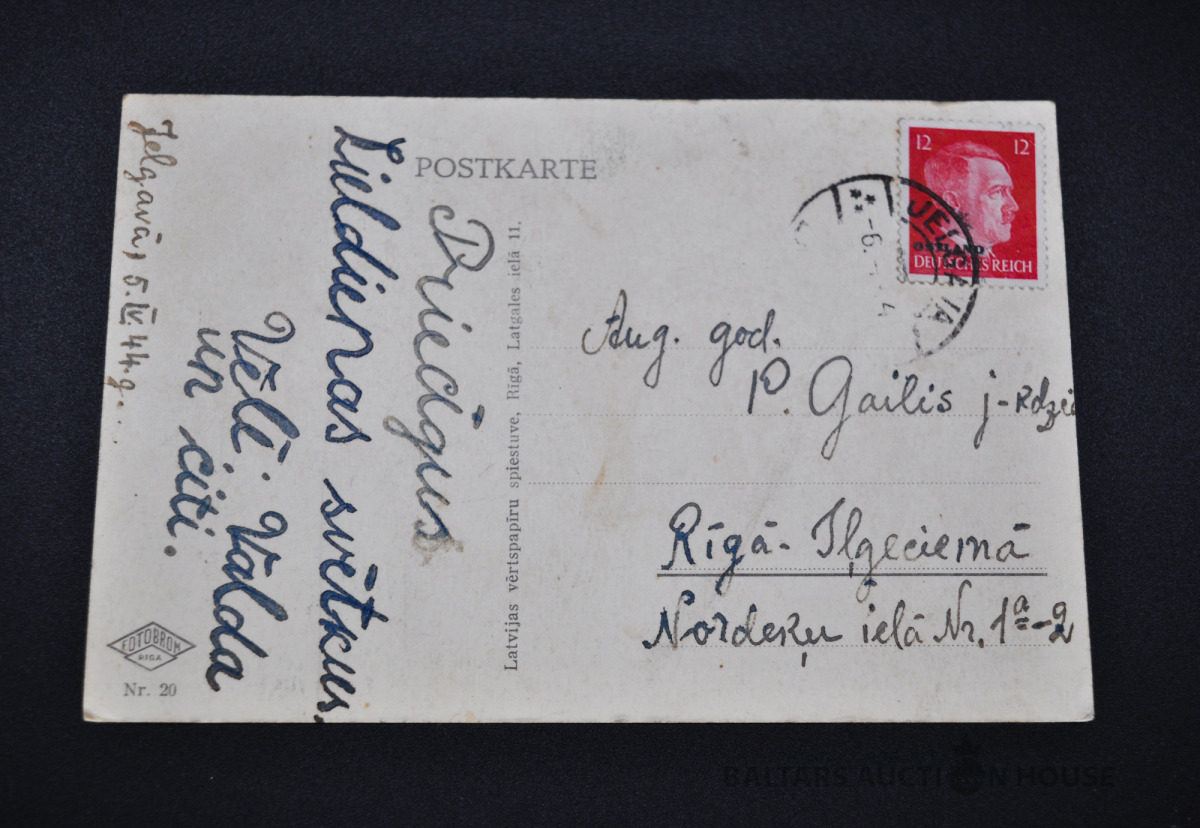 POSTKARTE
12 12
OSTLAND
DEUTSCHES REICH
JELGAVA
-6.
4
Jelgavā, 5.IV.44.g.
Priecīgus
Lieldienas svētkus,
Vēlī Valda
un citi.
Latvijas vērtspapīru spiestuve, Rīgā, Latgales ielā 11.
Aug. god.
P. Gailis j-kdze
Rīgā- Iļģeciemā
Nordeķu ielā Nr. 1ª-2
FOTOBROM
RIGA
Nr. 20
BALTARS AUCTION HOUSE